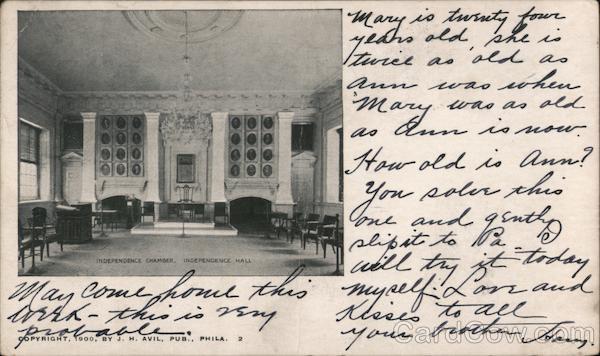 Mary is twenty four
years old, she is
twice as old as
Ann was when
Mary was as old
as Ann is now.
How old is Ann?
You solve this
one and gently
slip it to Pa _ I
will try it today
myself. Love and
Kisses to all
your brother
INDEPENDENCE CHAMBER, INDEPENDENCE HALL
May come home this
week - this is very
probable.
COPYRIGHT, 1900, BY J. H. AVIL, PUB., PHILA. 2
CardCow.com